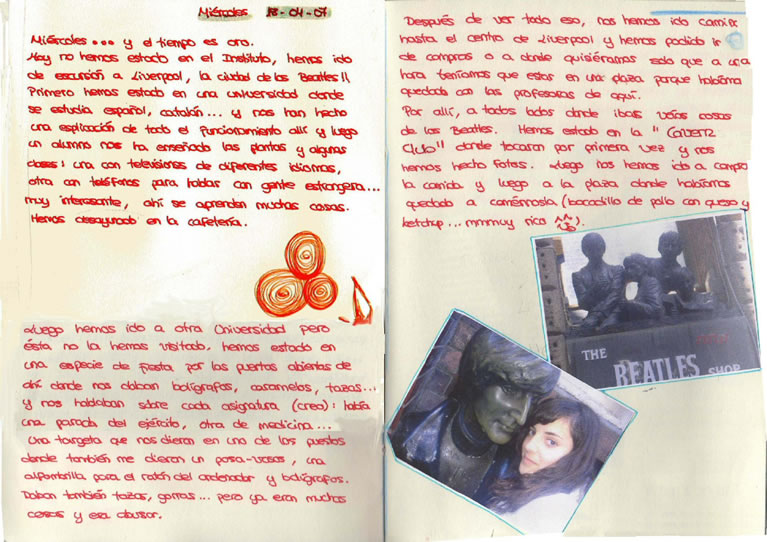 Miércoles 18-04-07
Miércoles... y el tiempo es oro.
Hoy no hemos estado en el Instituto, hemos ido
de excursión a Liverpool, la ciudad de los Beatles!!
Primero hemos estado en una universidad donde
se estudia español, catalán... Y nos han hecho
una explicación de todo el funcionamiento allí y luego
un alumno nos ha enseñado las plantas y algunas
clases: una con televisiones de diferentes idiomas,
otra con teléfonos para hablar con gente extrangera...
muy interesante, ahí se aprenden muchas cosas.
Hemos desayunado en la cafetería.
Luego hemos ido a otra Universidad pero
ésta no la hemos visitado. Hemos estado en
una especie de fiesta por las puertas abiertas de
ahí donde nos daban bolígrafos, caramelos, tazas...
y nos hablaban sobre cada asignatura (creo): había
una parada del ejército, otra de medicina...
Una targeta que nos dieron en uno de los puestos
donde también me dieron un posa-vasos, una
alfombrilla para el ratón del ordenador y bolígrafos.
Daban también tazas, gorras... pero ya eran muchas
cosas y era abusar.
Después de ver todo eso, nos hemos ido
hasta el centro de Liverpool y hemos podido ir
de compras o a donde quisiéramos solo que a una
hora teníamos que estar en una plaza porque habíamos
quedado con las profesoras de aquí.
Por allí, a todos lados donde ibas veías cosas
de los Beatles. Hemos estado en la "
Club" donde tocaron por primera vez y nos
hemos hecho fotos. Luego nos hemos ido a comprar
la comida y luego a la plaza donde habíamos
quedado a comérnosla (bocadillo de pollo con queso y
ketchup... mmmuy rico ^^).
THE
BEATLES SHOP